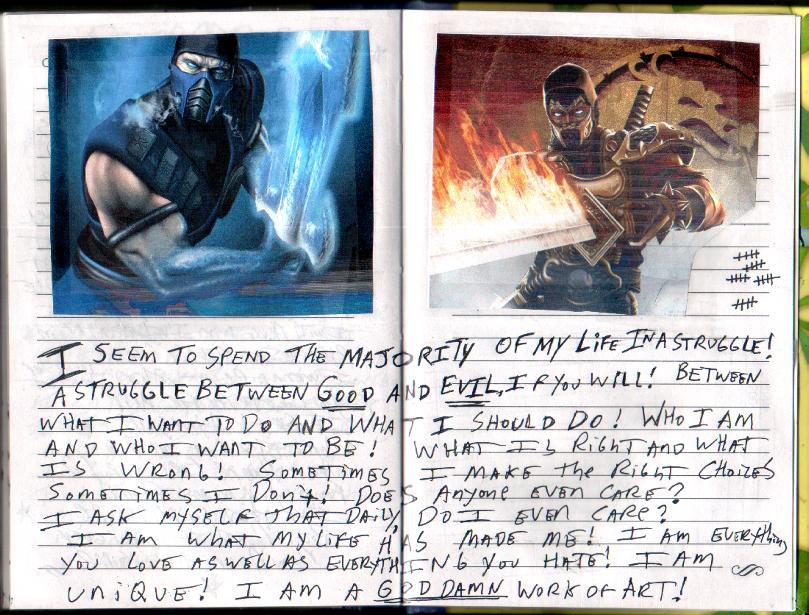 I SEEM TO SPEND THE MAJORITY OF MY LIFE IN A STRUGGLE!
A STRUGGLE BETWEEN GOOD AND EVIL, IF YOU WILL! BETWEEN
WHAT I WANT TO DO AND WHAT I SHOULD DO! WHO I AM
AND WHO I WANT TO BE! WHAT IS RIGHT AND WHAT
IS WRONG! SOMETIMES I MAKE THE RIGHT CHOICES
SOMETIMES I DON'T! DOES ANYONE EVEN CARE?
I ASK MYSELF THAT DAILY, DO I EVEN CARE?
I AM WHAT MY LIFE HAS MADE ME! I AM EVERYTHING
YOU LOVE AS WELL AS EVERYTHING YOU HATE! I AM
UNIQUE! I AM A GOD DAMN WORK OF ART!